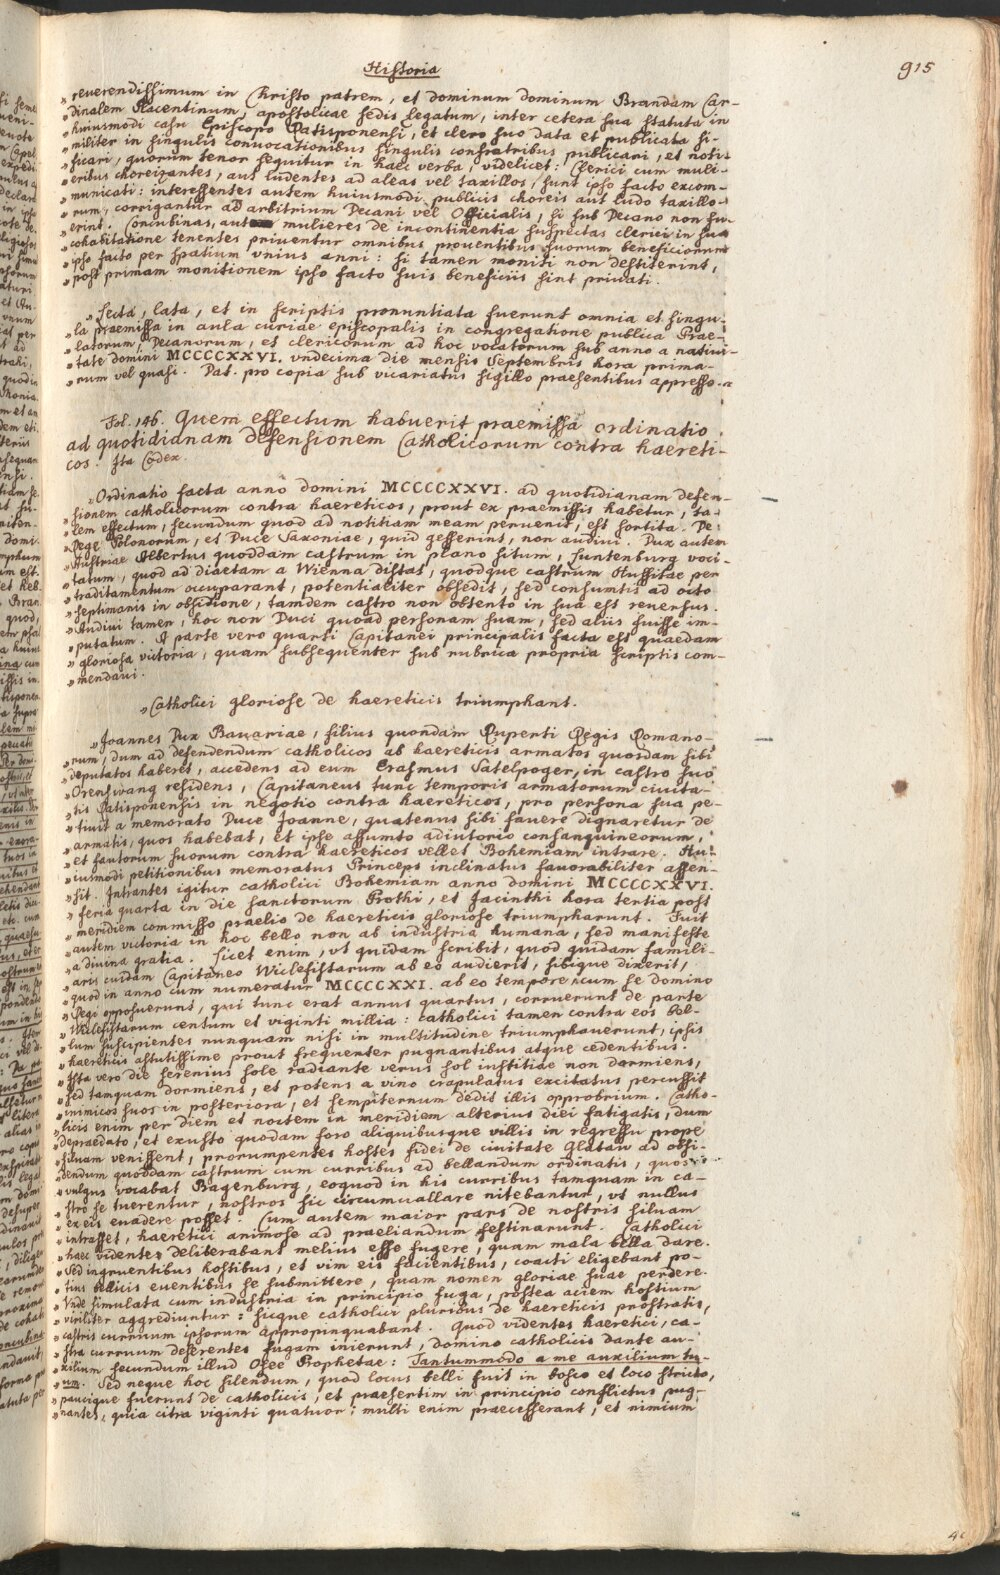 Historia
915
„reuerendissimum in Christo patrem, et dominum dominum Brandam Car-
„dinalem Placentinum, apostolicae sedis legatum, inter cetera sua statuta in
„huiusmodi casu Episcopo Ratisponensi, et clero suo data et publicata si-
„militer in singulis conuocationibus singulis confratribus publicari, et noti-
„ficari, quorum tenor sequitur in haec verba, videlicet: Clerici cum muli-
„eribus choreizantes, aut ludentes ad aleas vel taxillos, sunt ipso facto excom-
„municati: interessentes autem huiusmodi publicis choreis aut ludo taxillo-
„rum, corrigantur ad arbitrium Decani vel Officialis, si sub Decano non fu-
„erint. Concubinas, aut mulieres de incontinentia suspectas clerici in sua
„cohabitatione tenentes priuentur omnibus prouentibus suorum beneficiorum
„ipso facto per spatium vnius anni: si tamen moniti non destiterint,
„post primam monitionem ipso facto suis beneficiis sint priuati.
„Lecta, lata, et in scriptis pronuntiata fuerunt omnia et singu-
„la praemissa in aula curiae episcopalis in congregatione publica Prae-
„latorum, Decanorum, et clericorum ad hoc vocatorum sub anno a natiui-
„tate domini MCCCCXXVI. vndecima die mensis Septembris hora prima-
„rum vel quasi. Dat. pro copia sub vicariatus sigillo praesentibus appresso.
Fol. 146. Quem effectum habuerit praemissa ordinatio
ad quotidianam defensionem Catholicorum contra haereti-
cos. Ita Codex.
„Ordinatio facta anno domini MCCCCXXVI. ad quotidianam defen-
„sionem catholicorum contra haereticos, prout ex praemissis habetur, ta-
„lem effectum, secundum quod ad notitiam meam peruenit, est sortita. De
„Rege Polonorum, et Duce Saxoniae, quid gesserint, non audiui. Dux autem
„Austriae Albertus quoddam castrum in plano situm, Luntenburg voci-
„tatum, quod ad diaetam a Wienna distat, quodque castrum Hussitae per
„traditamentum occuparant, potentialiter obsedit, sed consumtis ad octo
„septimanis in obsidione, tamdem castro non obtento in sua est reuersus.
„Audiui tamen, hoc non Duci quoad personam suam, sed aliis fuisse im-
„putatum. A parte vero quarti Capitanei principalis facta est quaedam
„gloriosa victoria, quam subsequenter sub rubrica propria scriptis com-
„mendaui.
„Catholici gloriose de haereticis triumphant.
„Joannes Dux Bauariae, filius quondam Ruperti Regis Romano-
„rum, dum ad defendendum catholicos ab haereticis armatos quosdam sibi
„deputatos haberet, accedens ad eum Erasmus Satelpoger, in castro suo
„Orenswang residens, Capitaneus tunc temporis armatorum ciuita-
„tis Ratisponensis in negotio contra haereticos, pro persona sua pe-
„tiuit a memorato Duce Joanne, quatenus sibi fauere dignaretur de
„armatis, quos habebat, et ipse assumto adiutorio consanguineorum,
„et fautorum suorum contra haereticos vellet Bohemiam intrare. Hu-
„iusmodi petitionibus memoratus Princeps inclinatus fauorabiliter assen-
„sit. Intrantes igitur catholici Bohemiam anno domini MCCCCXXVI.
„feria quarta in die sanctorum Prothi, et Jacinthi hora tertia post
„meridiem commisso praelio de haereticis gloriose triumpharunt. Fuit
„autem victoria in hoc bello non ab industria humana, sed manifeste
„a diuina gratia. Licet enim, vt quidam scribit, quod quidam famili-
„aris cuidam Capitaneo Wiclefistarum ab eo audierit, sibique dixerit,
„quod in anno cum numeratur MCCCCXXI. ab eo tempore, cum se domino
„Regi opposuerunt, qui tunc erat annus quartus, corruerunt de parte
„Wiclefistarum centum et viginti millia: catholici tamen contra eos bel-
„lum suscipientes nunquam nisi in multitudine triumphauerunt, ipsis
„haereticis astutissime prout frequenter pugnantibus atque cedentibus.
„Ista vero die serenius sole radiante verus sol iustitiae non dormiens,
„sed tamquam dormiens, et potens a vino crapulatus excitatus, percussit
„inimicos suos in posteriora, et sempiternum dedit illis opprobrium. Catho-
„licis enim per diem et noctem in meridiem alterius diei fatigatis, dum
„depraedato, et exusto quodam foro aliquibusque villis in regressu prope
„siluam venissent, prorumpentes hostes fidei de ciuitate Glataw ad obsi-
„dendum quoddam castrum cum curribus ad bellandum ordinatis, quos
„vulgus vocabat Bagenburg, eoquod in his curribus tamquam in ca-
„stro se tuerentur, nostros sic circumuallare nitebantur, vt nullus
„ex eis euadere posset. Cum autem maior pars de nostris siluam
„intrasset, haeretici animose ad praeliandum festinarunt. Catholici
„haec videntes deliberabant melius esse fugere, quam mala bella dare.
„Sed ingruentibus hostibus, et vim eis facientibus, coacti eligebant po-
„tius bellicis euentibus se submittere, quam nomen gloriae suae perdere.
„Vnde simulata cum industria in principio fuga, postea aciem hostium
„viriliter aggrediuntur: sicque catholici pluribus de haereticis prostratis,
„castris curruum ipsorum appropinquabant. Quod videntes haeretici, ca-
„stra curruum deserentes fugam inierunt, domino catholicis dante au-
„xilium secundum illud Osee Prophetae: Tantummodo a me auxilium tu-
„um. Sed neque hoc silendum, quod locus belli fuit in bosco et loco stricto,
„paucique fuerunt de catholicis, et praesertim in principio conflictus pug-
„nantes, quia citra viginti quatuor: multi enim praecesserant, et nimium